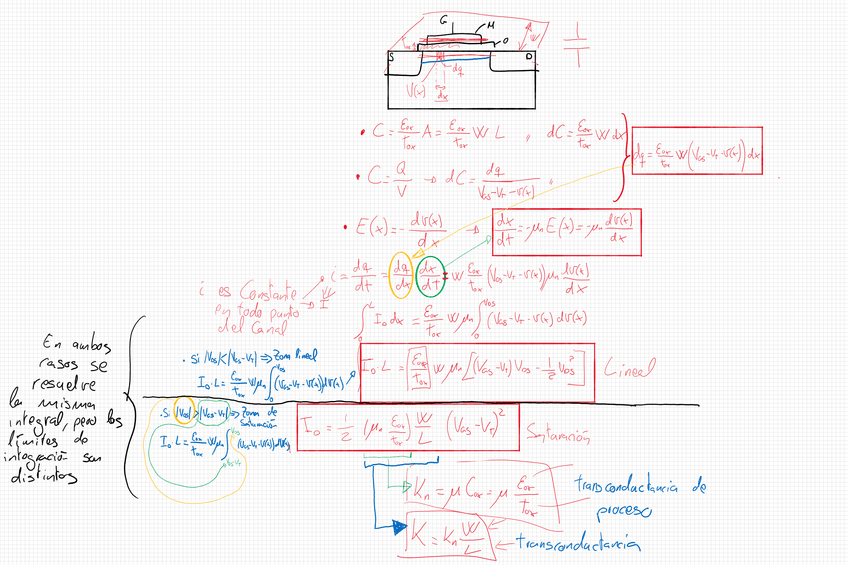 G
M
O
W
t_ox
S
D
dq
V(x)
dx
• C = ε_ox/t_ox A = ε_ox/t_ox W L ,, dC = ε_ox/t_ox W dx
dq = ε_ox/t_ox W (V_GS - V_T - V(x)) dx
• C = Q/V → dC = dq/(V_GS - V_T - V(x)) ,,
• E(x) = - dV(x)/dx → dx/dt = -μ_n E(x) = -μ_n dV(x)/dx
i = dq/dt = dq/dx dx/dt = W ε_ox/t_ox (V_GS - V_T - V(x)) μ_n dV(x)/dx
i es Constante
en todo punto
del Canal
∫_0^L I_D dx = ε_ox/t_ox W μ_n ∫_0^V_DS (V_GS - V_T - V(x)) dV(x)
En ambos
casos se
resuelve
la misma
integral, pero los
límites de
integración son
distintos
• si |V_DS| < |V_GS - V_T| ⇒ Zona lineal
I_D·L = ε_ox/t_ox W μ_n ∫_0^V_DS (V_GS - V_T - V(x)) dV(x)
I_D·L = ε_ox/t_ox W μ_n [(V_GS - V_T) V_DS - 1/2 V_DS^2]
Lineal
• si |V_DS| > |V_GS - V_T| ⇒ Zona de
saturación
I_D·L = ε_ox/t_ox W μ_n ∫ (V_GS - V_T - V(x)) dV(x)
V_DS
V_GS - V_T
I_D = 1/2 (μ_n ε_ox/t_ox) W/L (V_GS - V_T)^2
Saturación
K_n = μ C_ox = μ ε_ox/t_ox
transconductancia de
proceso
K = K_n W/L
transconductancia